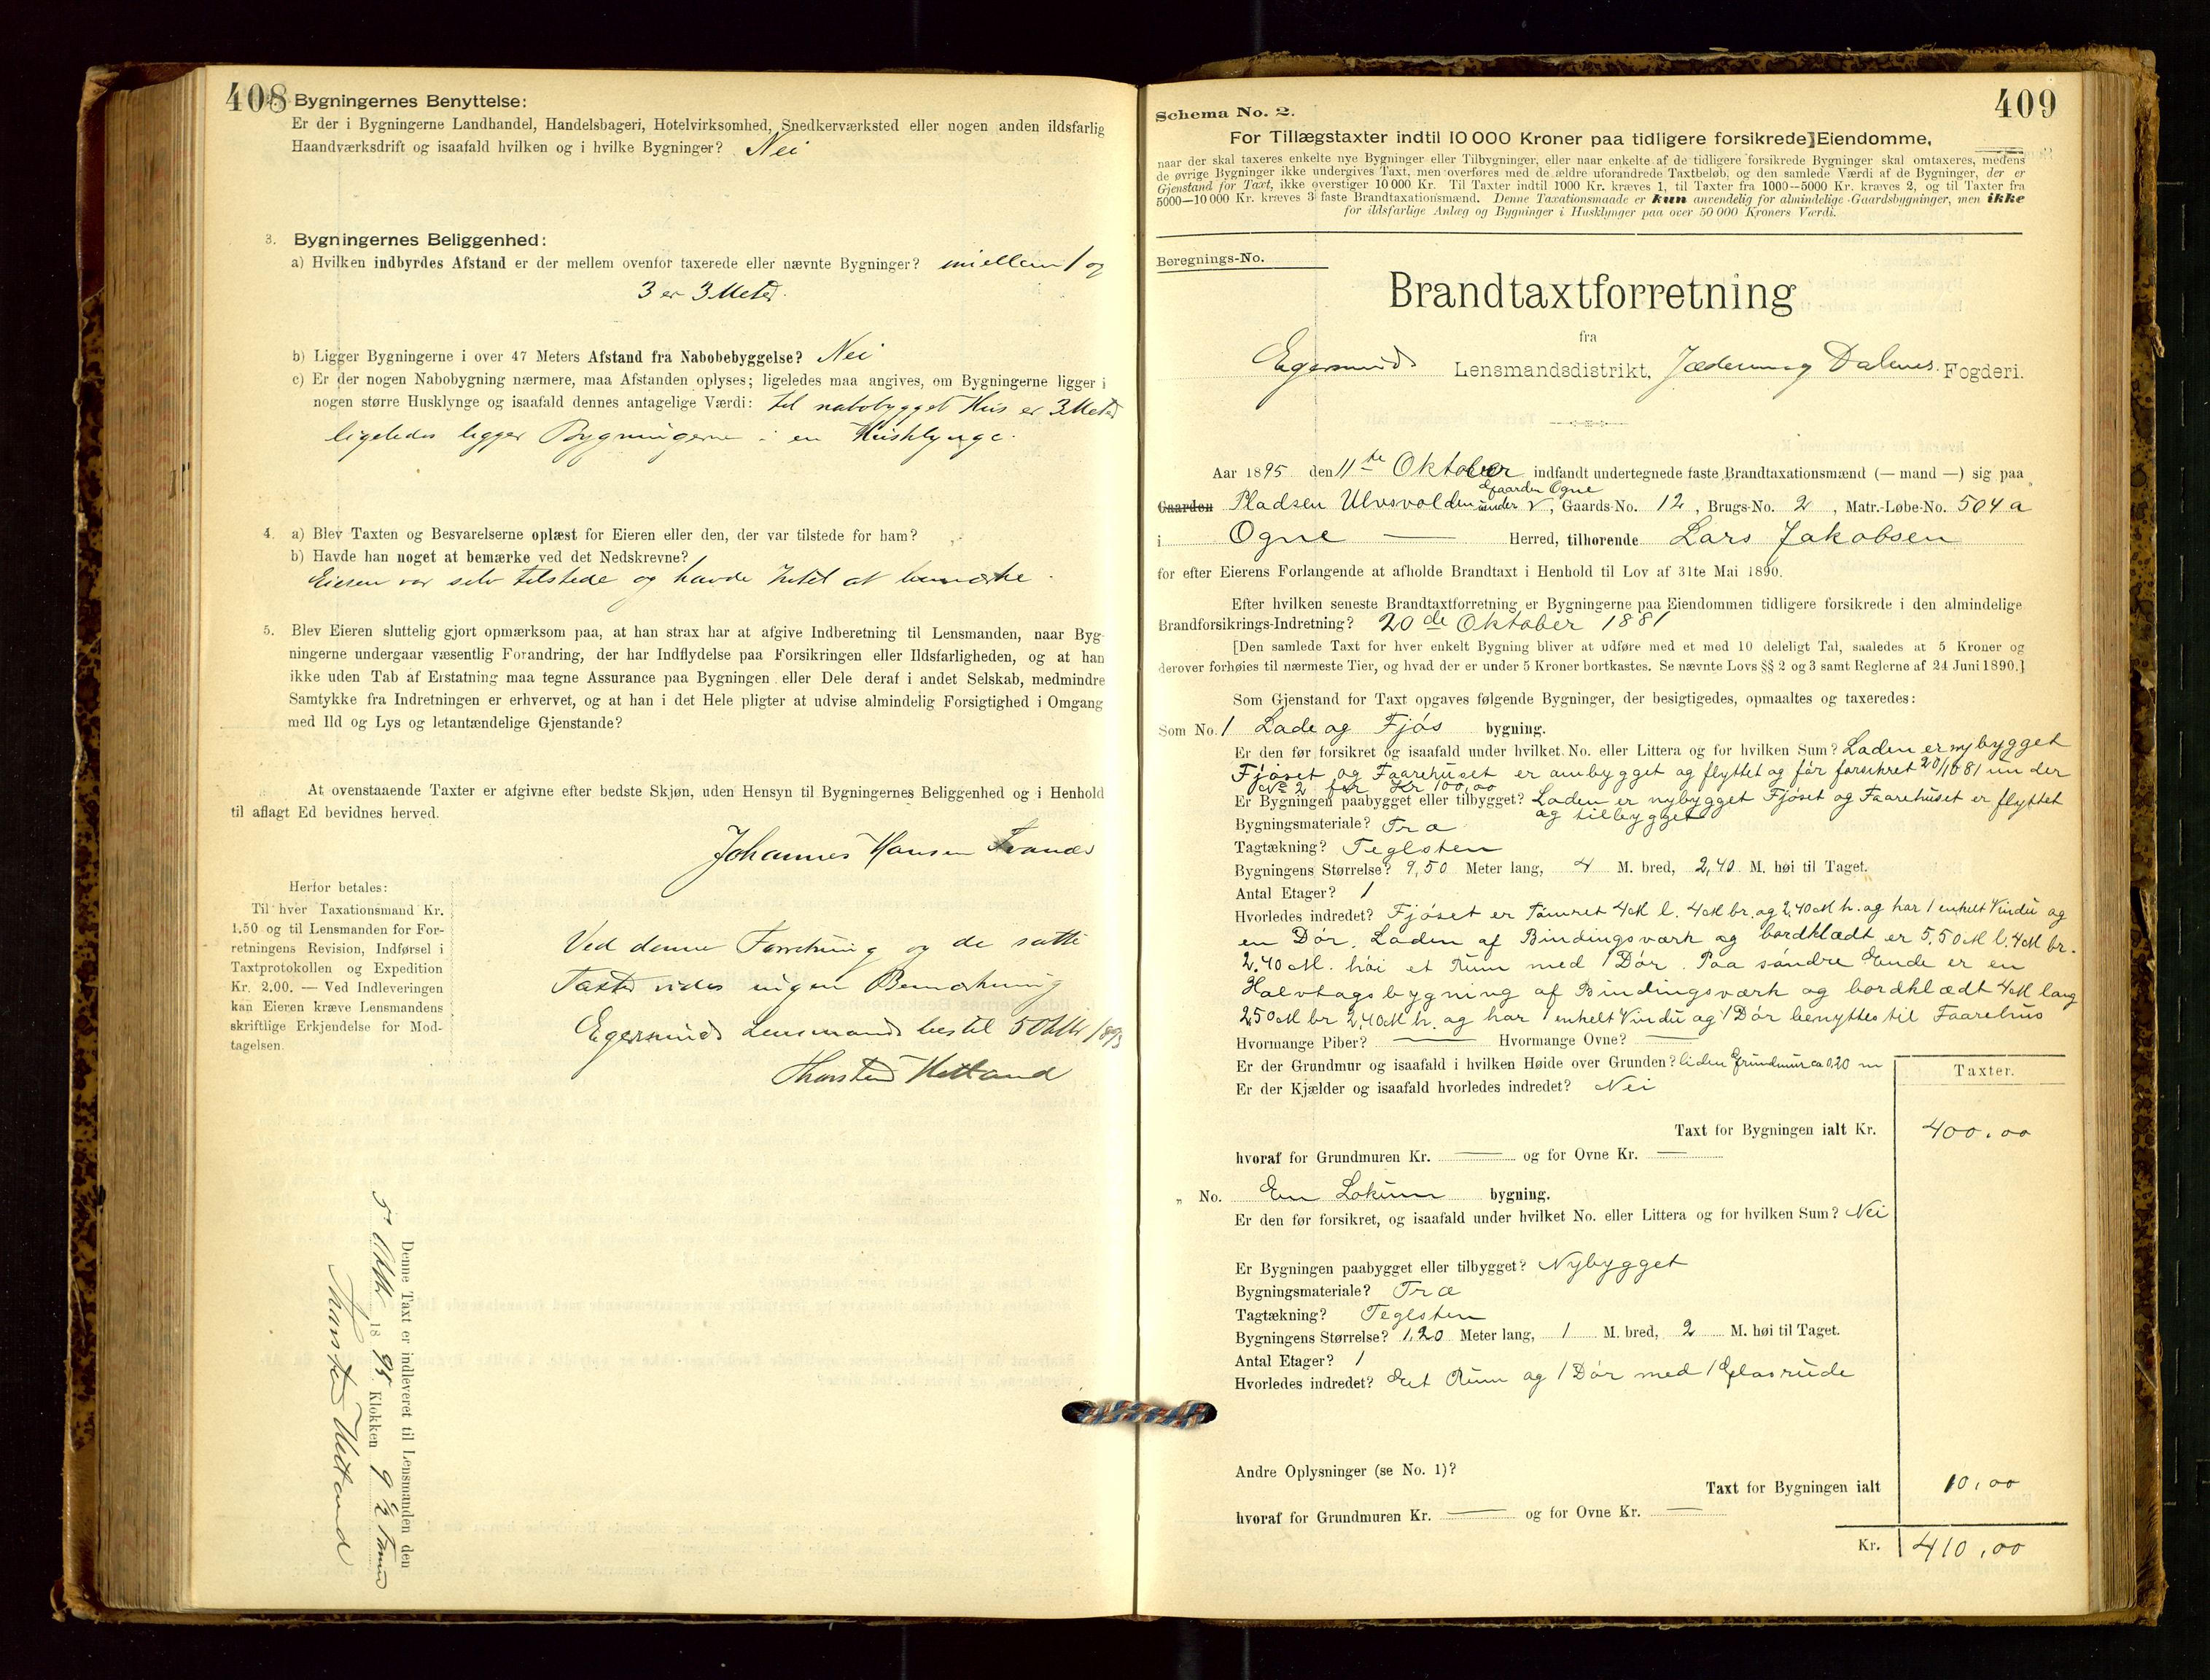 408
Bygningernes Benyttelse:
Er der i Bygningerne Landhandel, Handelsbageri, Hotelvirksomhed, Snedkerværksted eller nogen anden ildsfarlig
Haandværksdrift og isaafald hvilken og i hvilke Bygninger? Nei
3. Bygningernes Beliggenhed:
a) Hvilken indbyrdes Afstand er der mellem ovenfor taxerede eller nævnte Bygninger? mellem 1 og
3 er 3 Meter.
b) Ligger Bygningerne i over 47 Meters Afstand fra Nabobebyggelse? Nei
c) Er der nogen Nabobygning nærmere, maa Afstanden oplyses; ligeledes maa angives, om Bygningerne ligger i
nogen større Husklynge og isaafald dennes antagelige Værdi: til nabobygget Hus er 3 Meter
ligeledes ligger Bygningerne i en Husklynge.
4. a) Blev Taxten og Besvarelserne oplæst for Eieren eller den, der var tilstede for ham?
b) Havde han noget at bemærke ved det Nedskrevne?
Eieren var selv tilstede og havde Intet at bemærke.
5. Blev Eieren sluttelig gjort opmærksom paa, at han strax har at afgive Indberetning til Lensmanden, naar Byg-
ningerne undergaar væsentlig Forandring, der har Indflydelse paa Forsikringen eller Ildsfarligheden, og at han
ikke uden Tab af Erstatning maa tegne Assurance paa Bygningen eller Dele deraf i andet Selskab, medmindre
Samtykke fra Indretningen er erhvervet, og at han i det Hele pligter at udvise almindelig Forsigtighed i Omgang
med Ild og Lys og letantændelige Gjenstande?
At ovenstaaende Taxter er afgivne efter bedste Skjøn, uden Hensyn til Bygningernes Beliggenhed og i Henhold
til aflagt Ed bevidnes herved.
Johannes Hansen
Herfor betales:
Til hver Taxationsmand Kr.
1.50 og til Lensmanden for For-
retningens Revision, Indførsel i
Taxtprotokollen og Expedition
Kr. 2.00. — Ved Indleveringen
kan Eieren kræve Lensmandens
skriftlige Erkjendelse for Mod-
tagelsen.
Ved denne Forretning og de satte
Taxter vides ingen Bemærkning
Egersunds Lensmandsbestil 5 Oktbr 1895
Thorsten Hetland
Denne Taxt er indleveret til Lensmanden den
5te Oktbr 1895 Klokken 9 1/2 Form
Thorsten Hetland
409
Schema No. 2.
For Tillægstaxter indtil 10 000 Kroner paa tidligere forsikrede Eiendomme,
naar der skal taxeres enkelte nye Bygninger eller Tilbygninger, eller naar enkelte af de tidligere forsikrede Bygninger skal omtaxeres, medens
de øvrige Bygninger ikke undergives Taxt, men overføres med de ældre uforandrede Taxtbeløb, og den samlede Værdi af de Bygninger, der er
Gjenstand for Taxt, ikke overstiger 10 000 Kr. Til Taxter indtil 1000 Kr. kræves 1, til Taxter fra 1000—5000 Kr. kræves 2, og til Taxter fra
5000—10 000 Kr. kræves 3 faste Brandtaxationsmænd. Denne Taxationsmaade er kun anvendelig for almindelige Gaardsbygninger, men ikke
for ildsfarlige Anlæg og Bygninger i Husklynger paa over 50 000 Kroners Værdi.
Beregnings-No.
Brandtaxtforretning
fra
Egersunds Lensmandsdistrikt, Jæderen og Dalenes Fogderi.
Aar 1895 den 11te Oktober indfandt undertegnede faste Brandtaxationsmænd (— mand —) sig paa
Gaarden Ogne
Gaarden Pladsen Ulvsvolden under V, Gaards-No. 12, Brugs-No. 2, Matr.-Løbe-No. 504 a
i Ogne — Herred, tilhørende Lars Jakobsen
for efter Eierens Forlangende at afholde Brandtaxt i Henhold til Lov af 31te Mai 1890.
Efter hvilken seneste Brandtaxtforretning er Bygningerne paa Eiendommen tidligere forsikrede i den almindelige
Brandforsikrings-Indretning? 20de Oktober 1881
[Den samlede Taxt for hver enkelt Bygning bliver at udføre med et med 10 deleligt Tal, saaledes at 5 Kroner og
derover forhøies til nærmeste Tier, og hvad der er under 5 Kroner bortkastes. Se nævnte Lovs §§ 2 og 3 samt Reglerne af 24 Juni 1890.]
Som Gjenstand for Taxt opgaves følgende Bygninger, der besigtigedes, opmaaltes og taxeredes:
Som No. 1 Lade og Fjøs bygning.
Er den før forsikret og isaafald under hvilket No. eller Littera og for hvilken Sum? Laden er nybygget
Fjøset og Faarehuset er ombygget og flyttet og før forsikret 20/10 81 under
No 2 for Kr 100,00
Er Bygningen paabygget eller tilbygget? Laden er nybygget Fjøset og Faarehuset er flyttet
og tilbygget
Bygningsmateriale? Træ
Tagtækning? Teglsten
Bygningens Størrelse? 9,50 Meter lang, 4 M. bred, 2,40 M. høi til Taget.
Antal Etager? 1
Hvorledes indredet? Fjøset er Tømret 4 M l. 4 M br. og 2,40 M h. og har 1 enkelt Vindu og
en Dør. Laden af Bindingsværk og bordklædt er 5,50 M l. 4 M br.
2,40 M. høi et Rum med 1 Dør. Paa søndre Ende er en
Halvtagsbygning af Bindingsværk og bordklædt 4 M lang
2,50 M br 2,40 M h. og har 1 enkelt Vindu og 1 Dør benyttes til Faarehus
Hvormange Piber? — Hvormange Ovne? —
Er der Grundmur og isaafald i hvilken Høide over Grunden? liden Grundmur ca 0,20 m
Er der Kjælder og isaafald hvorledes indredet? Nei
Taxter.
Taxt for Bygningen ialt Kr. 400,00
hvoraf for Grundmuren Kr. — og for Ovne Kr. —
„ No. En Lokum bygning.
Er den før forsikret, og isaafald under hvilket No. eller Littera og for hvilken Sum? Nei
Er Bygningen paabygget eller tilbygget? Nybygget
Bygningsmateriale? Træ
Tagtækning? Teglsten
Bygningens Størrelse? 1,20 Meter lang, 1 M. bred, 2 M. høi til Taget.
Antal Etager? 1
Hvorledes indredet? Eet Rum og 1 Dør med 1 Glasrude
Andre Oplysninger (se No. 1)?
Taxt for Bygningen ialt 10,00
hvoraf for Grundmuren Kr. — og for Ovne Kr. —
Kr. 410,00